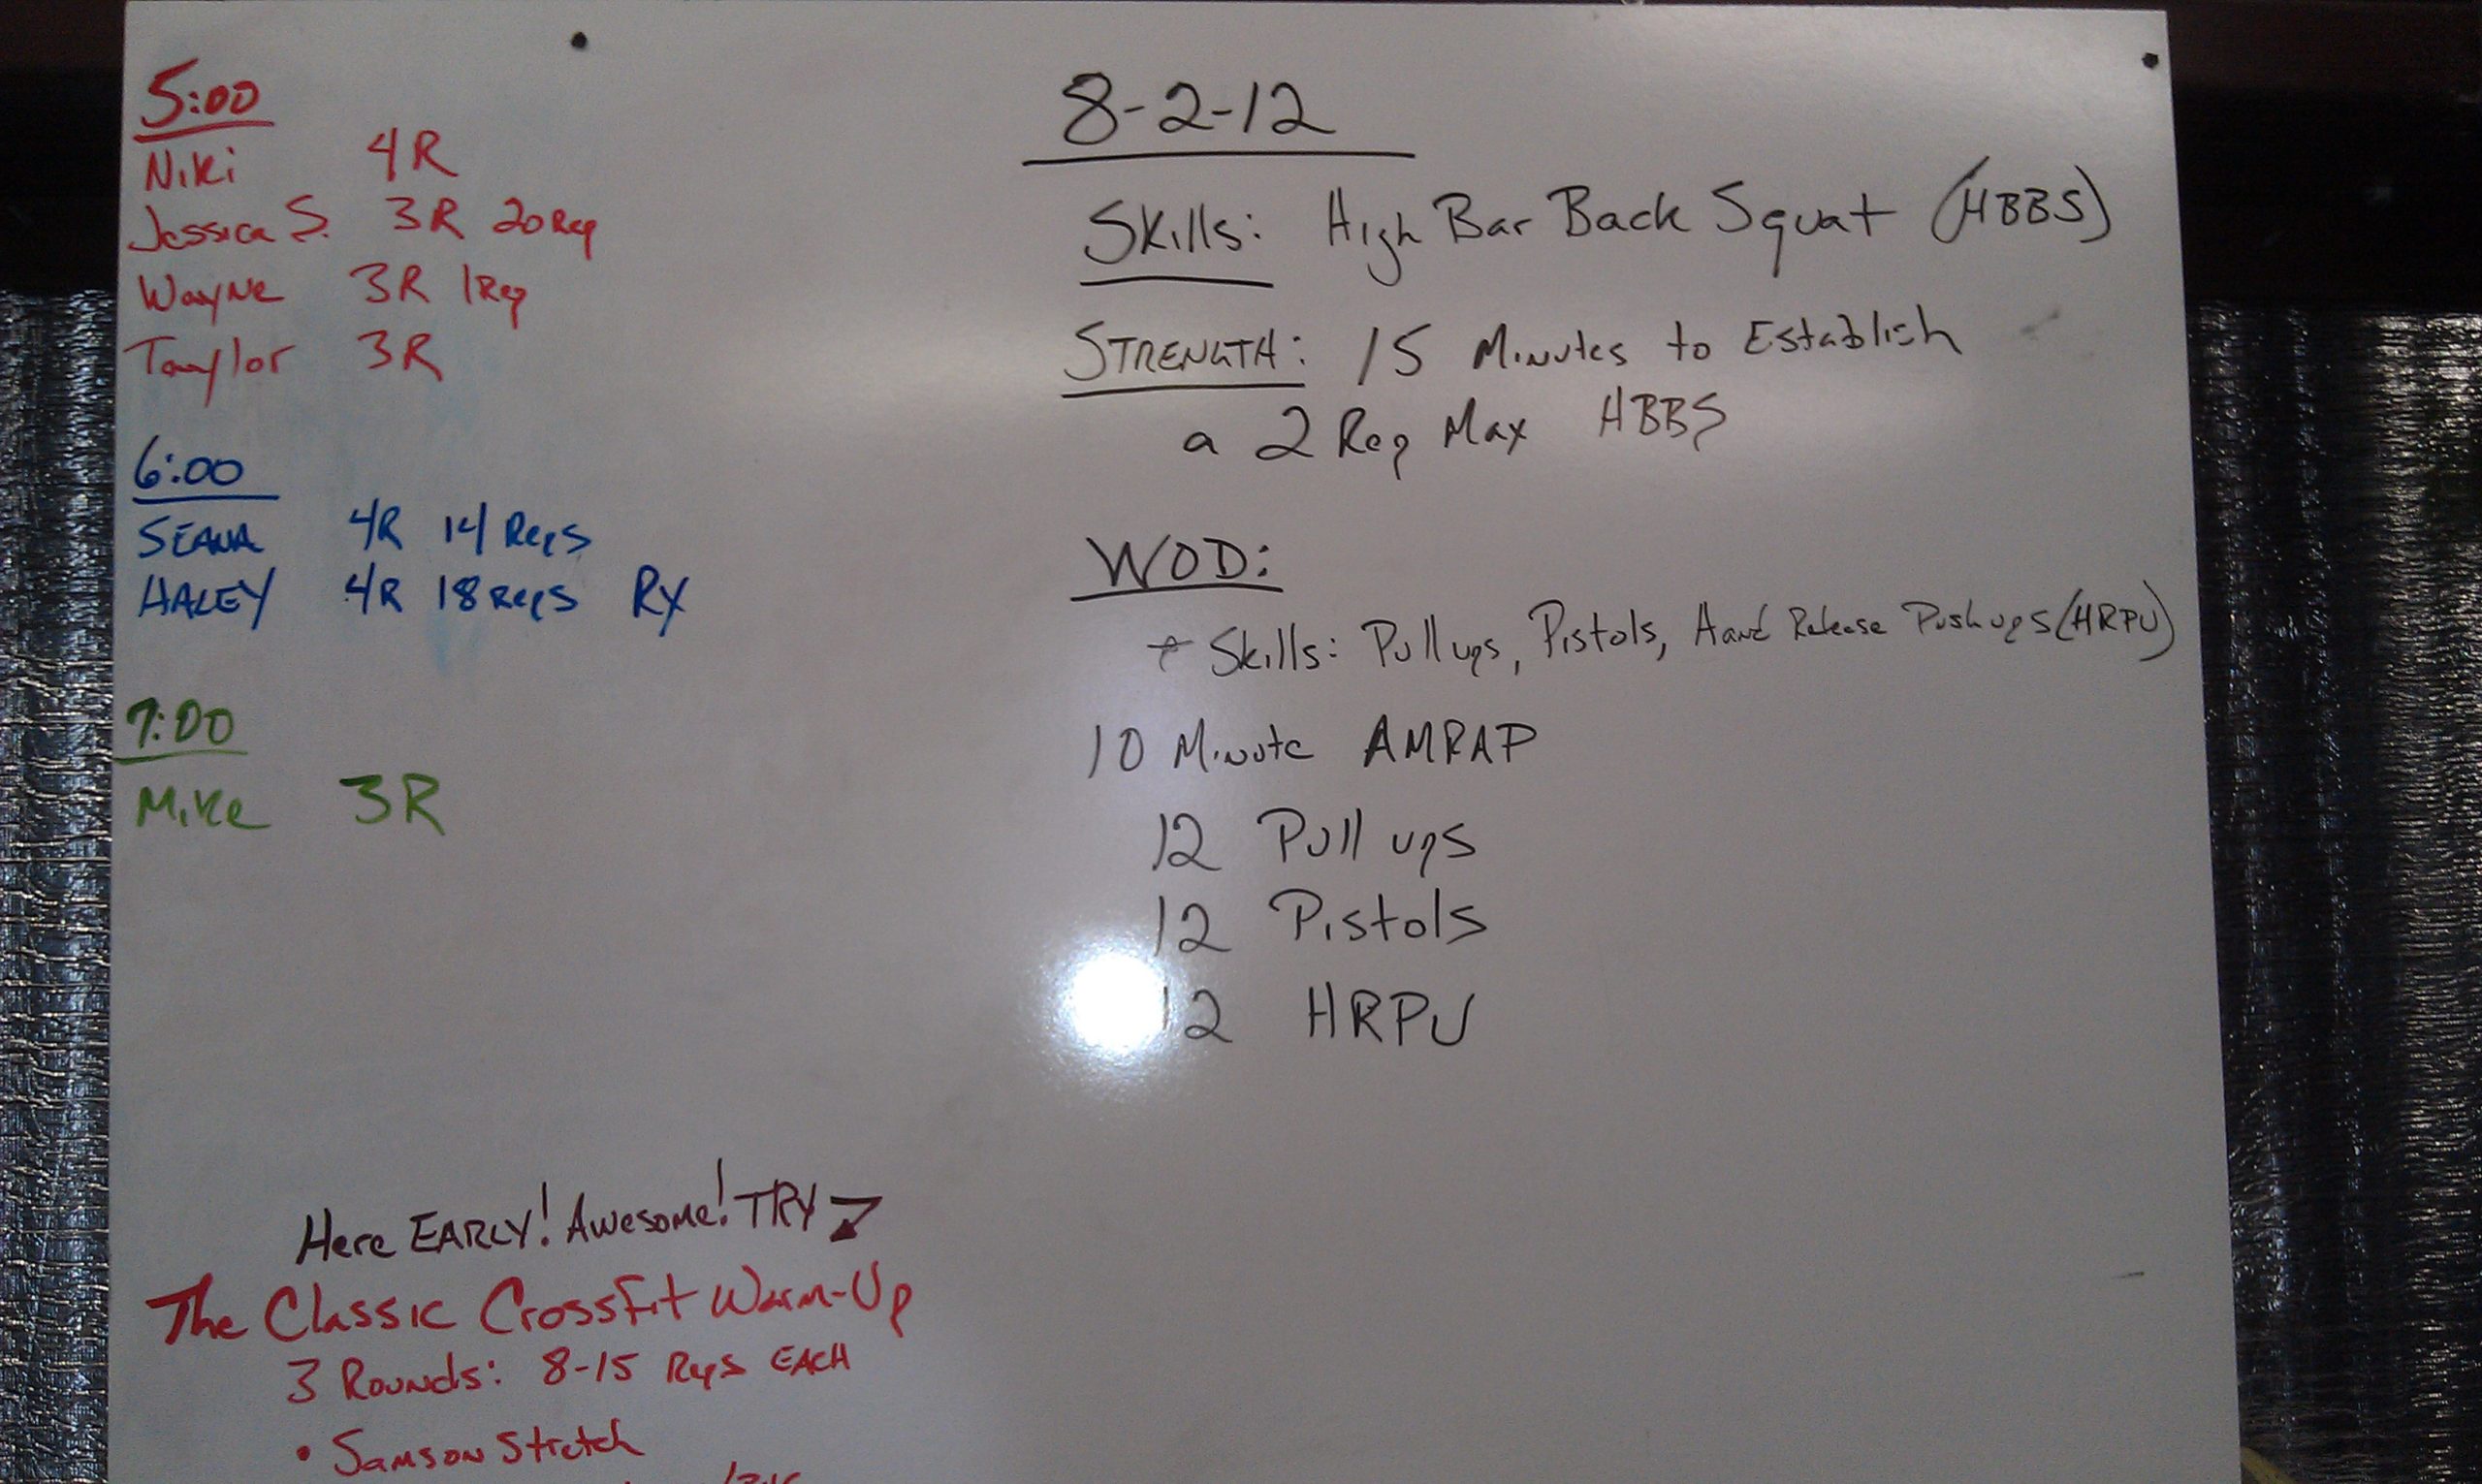 5:00
Niki 4R
Jessica S. 3R 20 Rep
Wayne 3R 1 Rep
Taylor 3R
6:00
SEANA 4R 14 Reps
HALEY 4R 18 Reps RX
7:00
Mike 3R
8-2-12
Skills: High Bar Back Squat (HBBS)
STRENGTH: 15 Minutes to Establish
a 2 Rep Max HBBS
WOD:
+ Skills: Pull ups, Pistols, Hand Release Push ups (HRPU)
10 Minute AMRAP
12 Pull ups
12 Pistols
12 HRPU
Here EARLY! Awesome! TRY
The Classic CrossFit Warm-Up
3 Rounds: 8-15 Reps EACH
• Samson Stretch